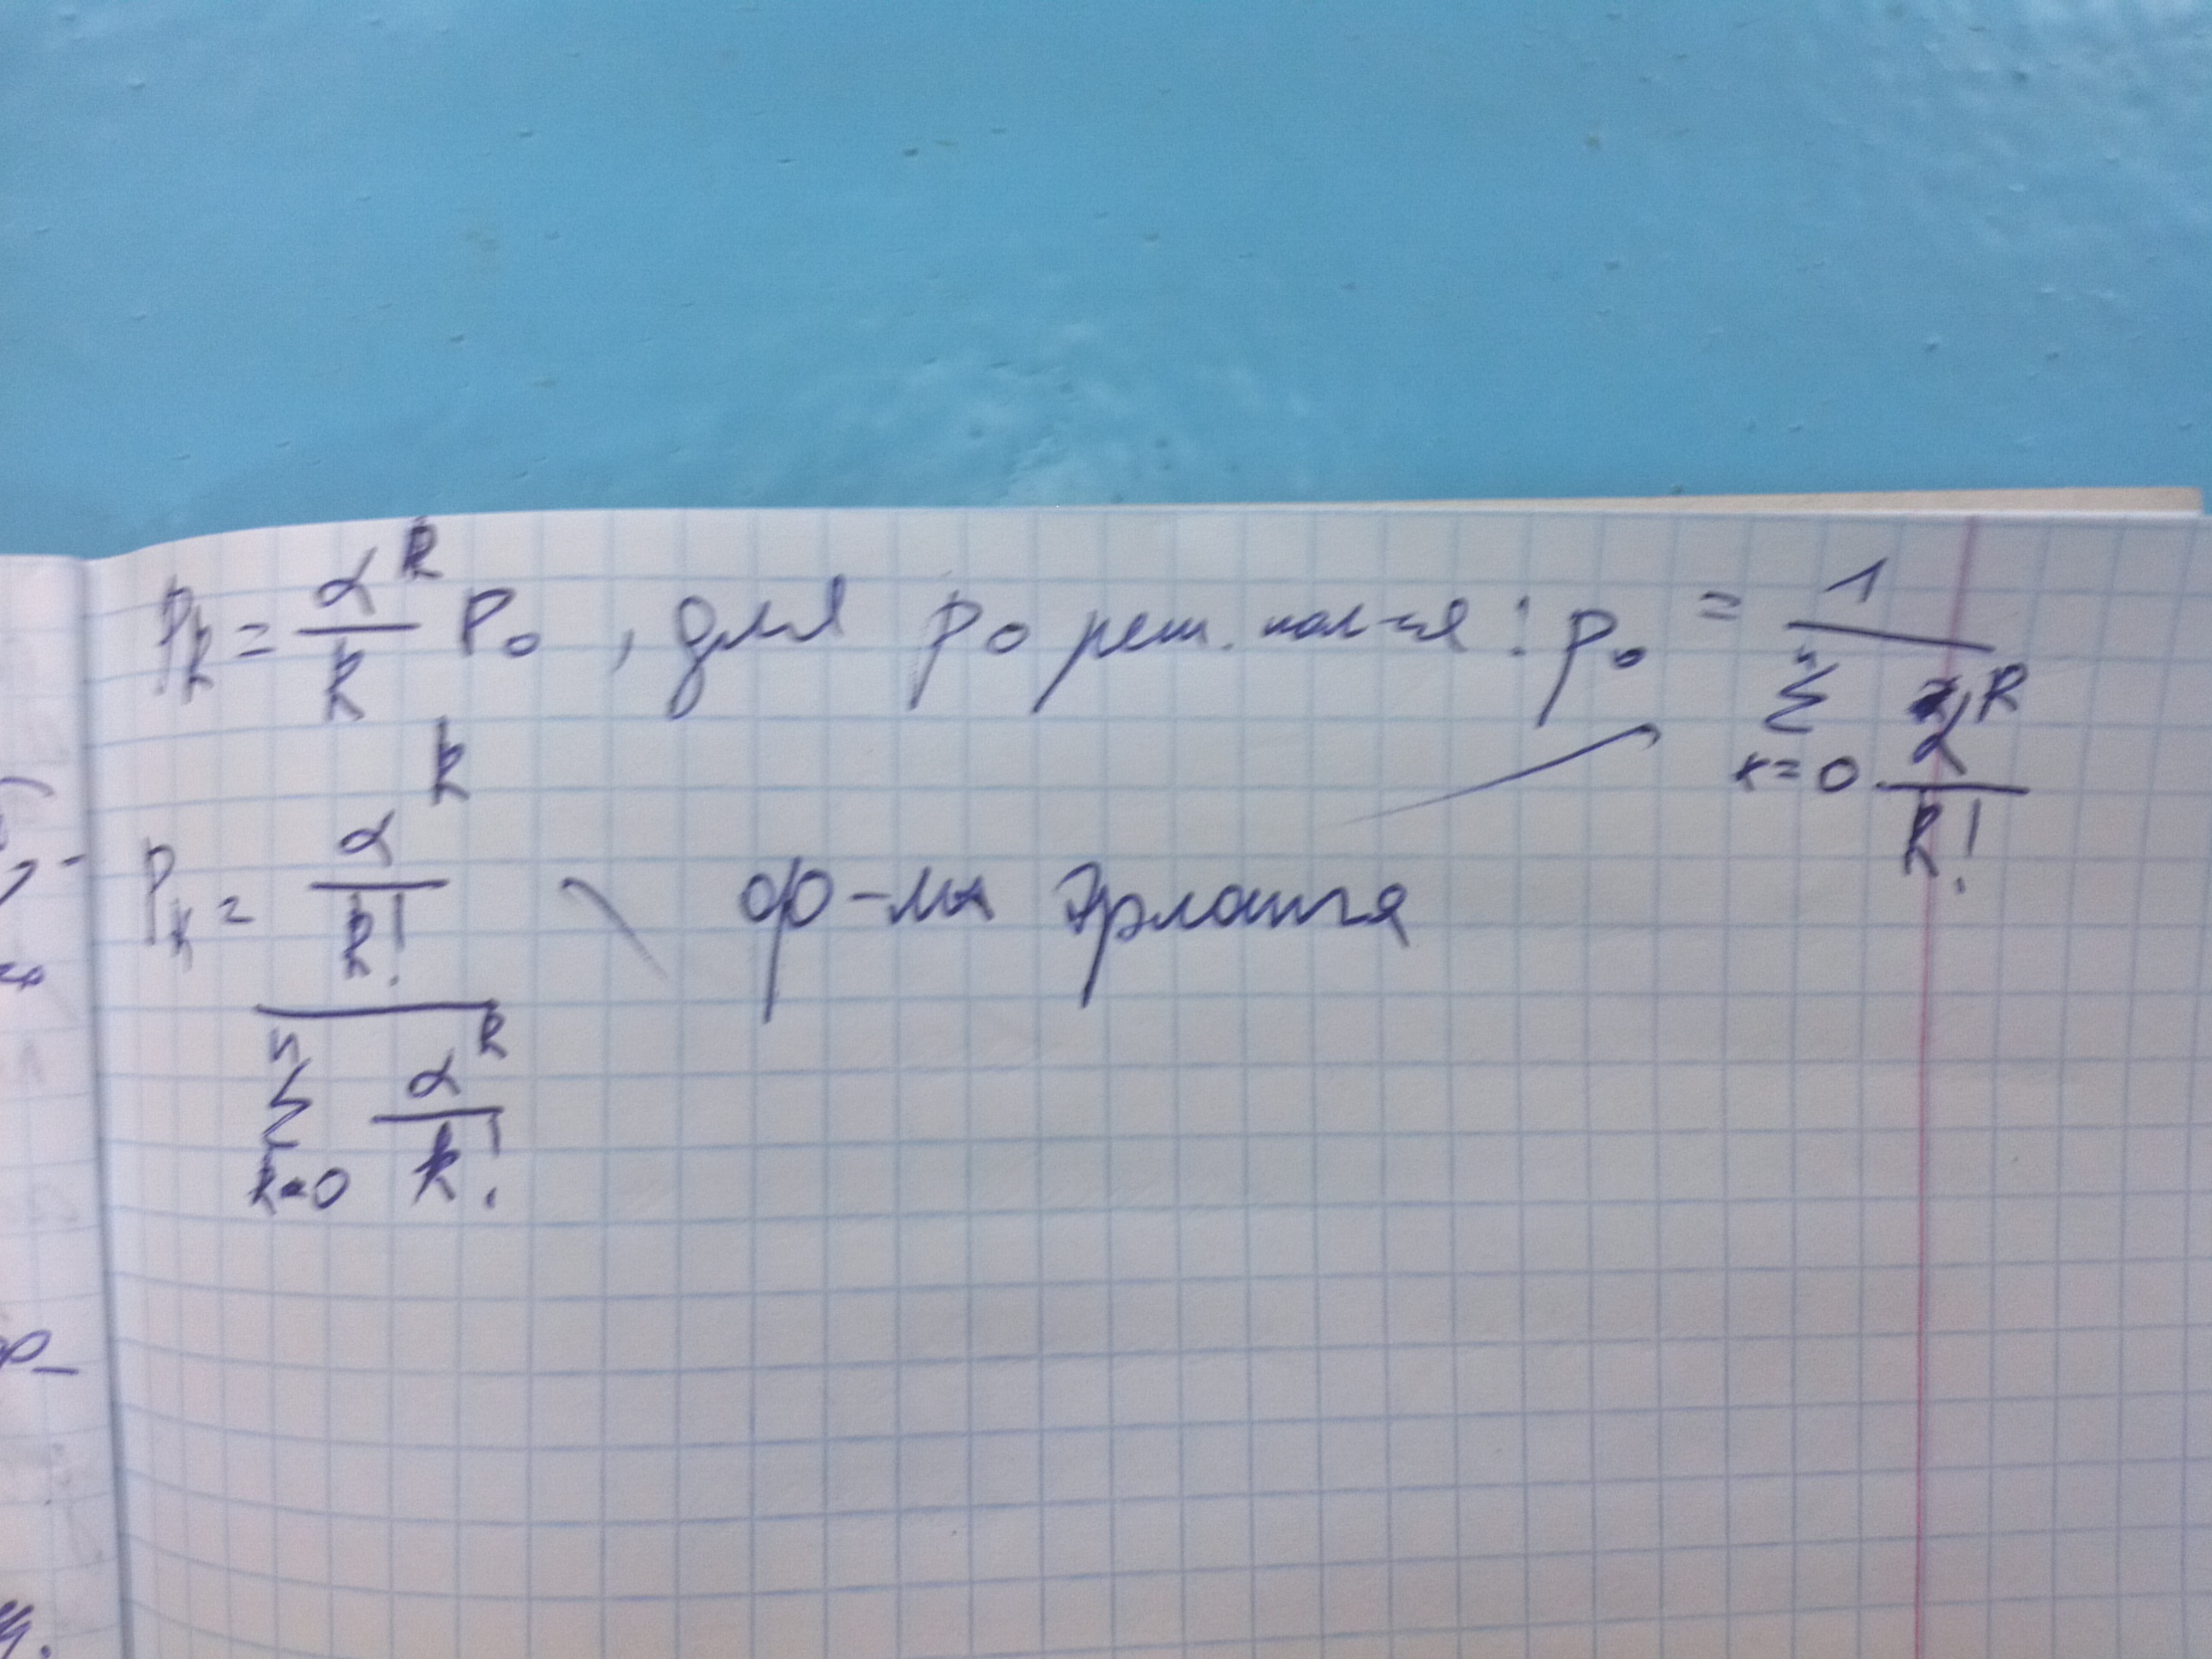 P_k = α^k / k P_0 , для p_0 реш. нах-ся : p_0 = 1 / ∑_{k=0}^{n} α^k / k!
P_k = (α^k / k!) / (∑_{k=0}^{n} α^k / k!) ф-ла Эрланга